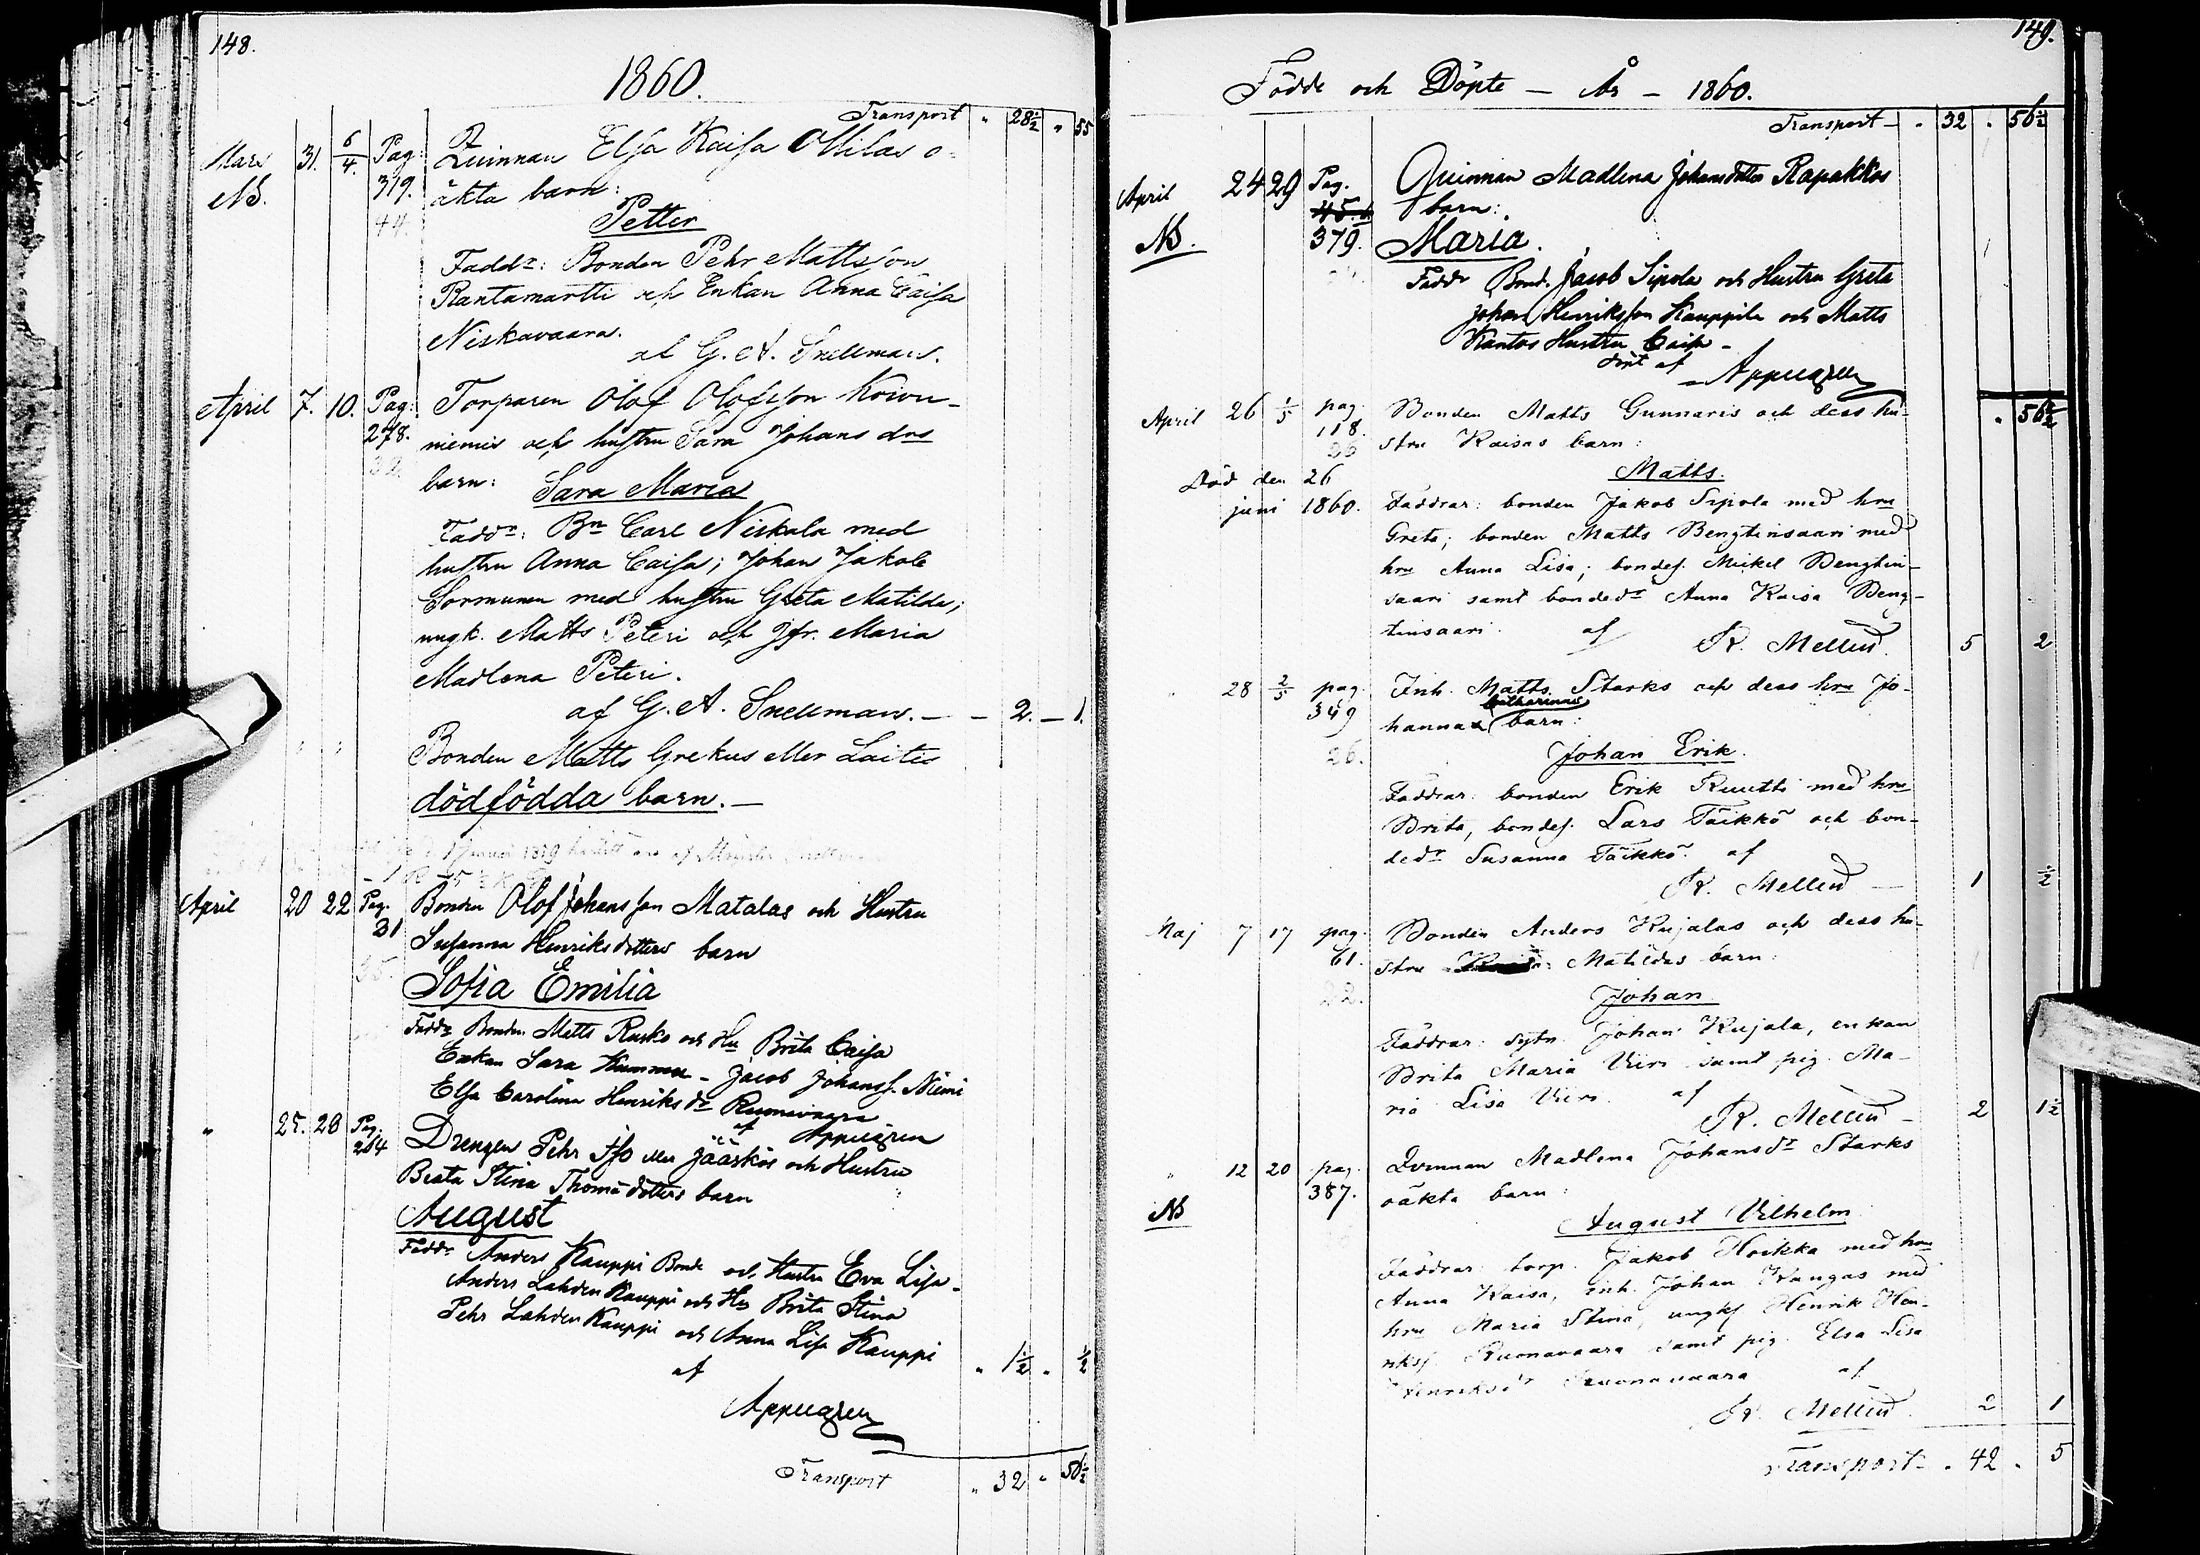 148.
1860.
Transport " 28½ " 55
Mars 31. 6/4. Pag: Qvinnan Elsa Kaisa Ollilas o-
NB. 319. äkta barn:
44. Petter
Faddr: Bonden Pehr Mattsson
Rantamartti och Enkan Anna Caisa
Niskavaara.
af G. A. Snellman.
April 7. 10. Pag: Torparen Olof Olofsson Koivu-
278. niemis och hustru Sara Johans drs
barn: Sara Maria
Faddr: Bn Carl Niskala med
hustru Anna Caisa; Johan Jakob
Sormunen med hustru Greta Matilda;
ungk. Matts Peteri och Jfr. Maria
Madlena Peteri.
af G. A. Snellman. — - 2. — 1.
Bonden Matts Grekus eller Laitis
dödfödda barn. —
April 20 22 Pag. Bonden Olof Johansson Matalas och Hustru
31 Susanna Henriksdotters barn
35. Sofia Emilia
Faddr Bonden Matts Rusko och Hu Brita Caisa
Enkan Sara Kumma - Jacob Johanss. Niemi
Elsa Carolina Henriks dr Ruonavaara
af Appelgren
" 25. 28 Pag. Drengen Pehr Ifs eller Jääskös och Hustru
264 Beata Stina Thomædotters barn
August
Faddr Anders Kauppi Bonde och Hustru Eva Lisa -
Anders Lahden Kauppi och Hu Brita Stina
Pehr Lahden Kauppi och Anna Lisa Kauppi
af " 1½ " ½
Appelgren
Transport " 32 " 56½
149.
Födde och Döpte — År — 1860.
Transport — " 32 " 56½
April 24 29 Pag. Quinnan Madlena Johansdotter Rapakkos
barn:
NB. 379. Maria.
Faddr Bond. Jacob Sipola och Hustru Greta
Johan Henriksson Kauppila och Matts
Kantos Hustru Caisa -
döpt af
Appelgren
" 56½
April 26 1/5 pag. Bonden Matts Gunnaris och dess hu-
118. stru Kaisas barn:
Död den 26 Matts.
juni 1860. Faddrar: bonden Jakob Sipola med hru
Greta; bonden Matts Bengtinsaari med
hru Anna Lisa; bondes. Mickel Bengtin-
saari samt bondedr Anna Kaisa Beng-
tinsaari. af
K. Mellin. 5 2
" 28 2/5 pag. Inh. Matts Starks och dess hru Jo-
349 hannas Catharinas barn:
26. Johan Erik.
Faddrar: bonden Erik Ruutti med hru
Brita, bondes. Lars Täikkö och bon-
dedr Susanna Täikkö. af
K. Mellin — 1 ½
Maj 7 17 pag. Bonden Anders Kujalas och dess hu-
61. stru Matildas barn:
22. Johan
Faddrar: sytn. Johan Kujala, enkan
Brita Maria Viiri samt pig. Ma-
ria Lisa Viiri. af
K. Mellin — 2 1½
" 12 20 pag. Qvinnan Madlena Johansdr Starks
387. oäkta barn:
NB August Vilhelm
Faddrar: torp. Jakob Hoikka med hru
Anna Kaisa, inh. Johan Kangas med
hru Maria Stina, ungk. Henrik Hen-
rikss. Ruonavaara samt pig. Elsa Lisa
Henriksdr Ruonavaara af
K. Mellin. 2 1
Transport - " 42 " 5